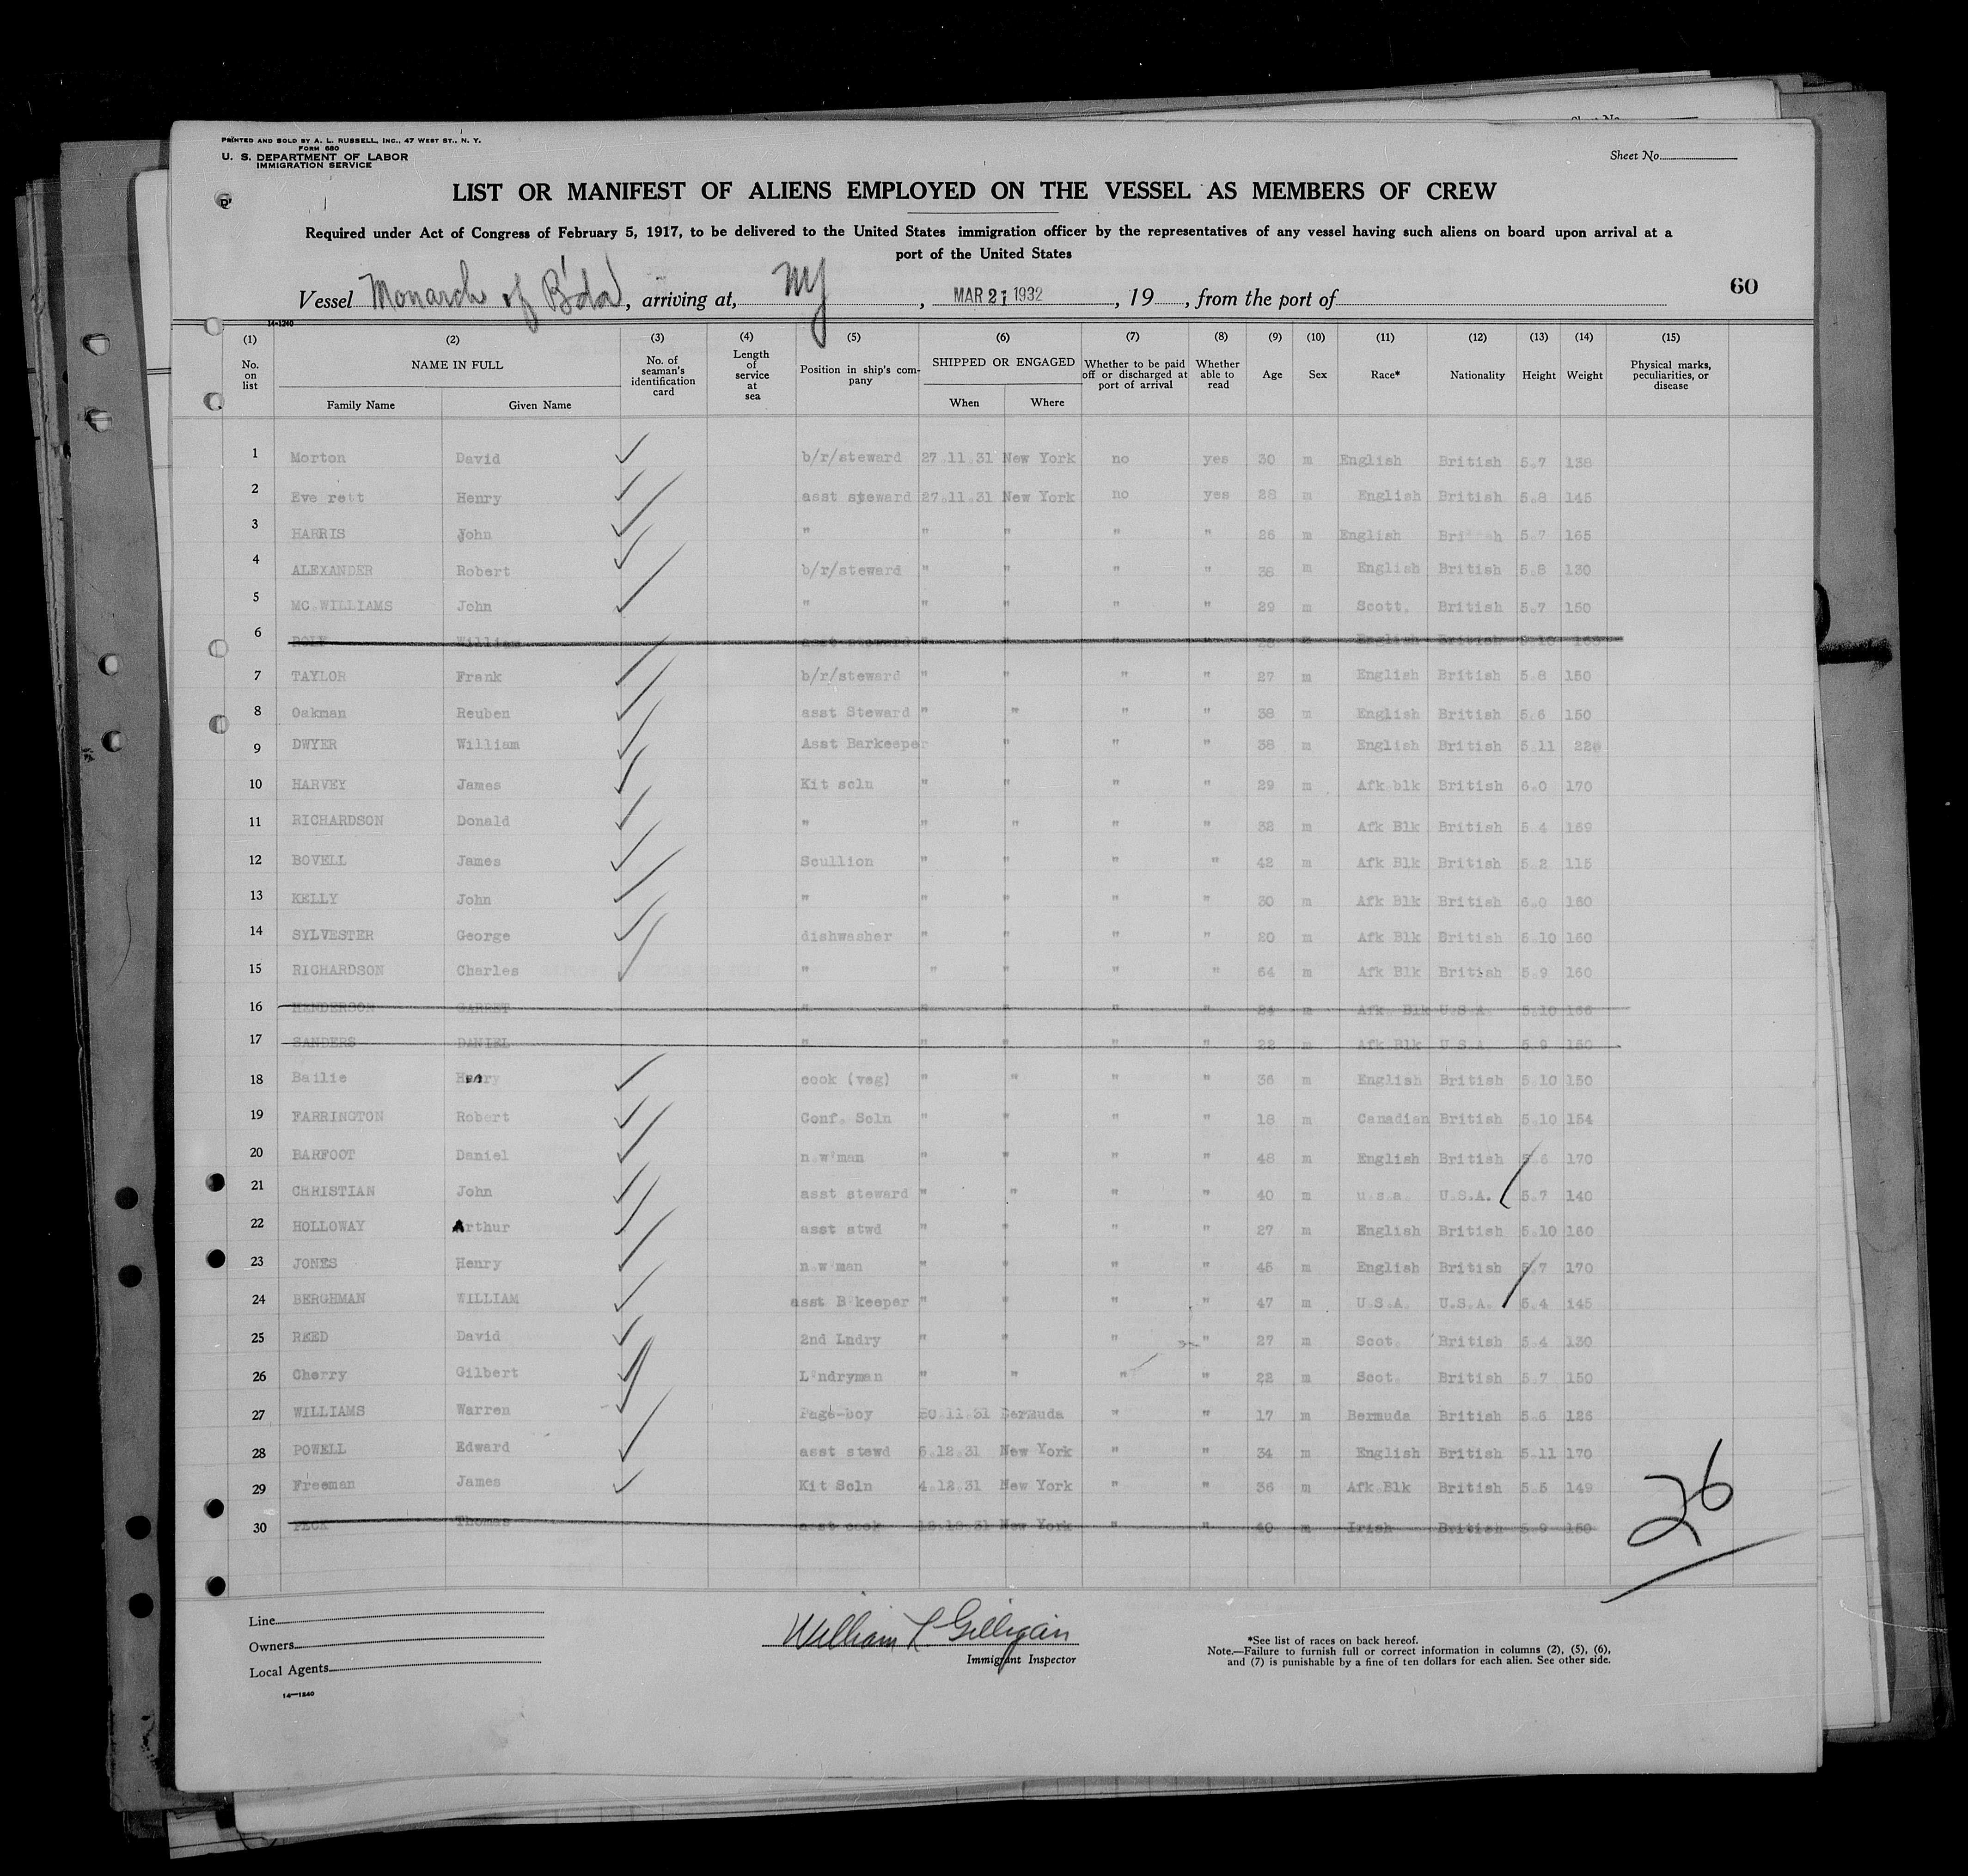 PRINTED AND SOLD BY A. L. RUSSELL, INC., 47 WEST ST., N. Y.
FORM 680
U. S. DEPARTMENT OF LABOR
IMMIGRATION SERVICE
Sheet No.
LIST OR MANIFEST OF ALIENS EMPLOYED ON THE VESSEL AS MEMBERS OF CREW
Required under Act of Congress of February 5, 1917, to be delivered to the United States immigration officer by the representatives of any vessel having such aliens on board upon arrival at a
port of the United States
Vessel Monarch of B'da, arriving at, NY, MAR 21 1932, 19, from the port of
60
14-1240
(1) (2) (3) (4) (5) (6) (7) (8) (9) (10) (11) (12) (13) (14) (15)
No. on list NAME IN FULL Family Name Given Name No. of seaman's identification card Length of service at sea Position in ship's company SHIPPED OR ENGAGED When Where Whether to be paid off or discharged at port of arrival Whether able to read Age Sex Race* Nationality Height Weight Physical marks, peculiarities, or disease
1 Morton David b/r/steward 27.11.31 New York no yes 30 m English British 5.7 138
2 Eve rett Henry asst steward 27.11.31 New York no yes 28 m English British 5.8 145
3 HARRIS John " " " " " 26 m English British 5.7 165
4 ALEXANDER Robert b/r/steward " " " " 38 m English British 5.8 130
5 MC.WILLIAMS John " " " " " 29 m Scott. British 5.7 150
6 William asst steward " " " " m English British 5.10
7 TAYLOR Frank b/r/steward " " " " 27 m English British 5.8 150
8 Oakman Reuben asst Steward " " " " 38 m English British 5.6 150
9 DWYER William Asst Barkeeper " " " 38 m English British 5.11 220
10 HARVEY James Kit scln " " " " 29 m Afk blk British 6.0 170
11 RICHARDSON Donald " " " " " 38 m Afk Blk British 5.4 159
12 BOVELL James Scullion " " " " 42 m Afk Blk British 5.2 115
13 KELLY John " " " " " 30 m Afk Blk British 6.0 160
14 SYLVESTER George dishwasher " " " " 20 m Afk Blk British 5.10 160
15 RICHARDSON Charles " " " " " 64 m Afk Blk British 5.9 160
16 HENDERSON GARRET " " " " " 24 m Afk Blk U.S.A. 5.10 166
17 SANDERS DANIEL " " " " " 22 m Afk Blk U.S.A. 5.9 150
18 Bailie Henry cook (veg) " " " " 36 m English British 5.10 150
19 FARRINGTON Robert Conf. Scln " " " " 18 m Canadian British 5.10 154
20 BARFOOT Daniel n.w'man " " " " 48 m English British 5.6 170
21 CHRISTIAN John asst steward " " " " 40 m u.s.a. U.S.A. 5.7 140
22 HOLLOWAY Arthur asst stwd " " " " 27 m English British 5.10 160
23 JONES Henry n.w'man " " " " 45 m English British 5.7 170
24 BERGHMAN WILLIAM asst B'keeper " " " " 47 m U.S.A. U.S.A. 5.4 145
25 REED David 2nd Lndry " " " " 27 m Scot. British 5.4 130
26 Cherry Gilbert L'ndryman " " " " 22 m Scot. British 5.7 150
27 WILLIAMS Warren Page-boy 30.11.31 Bermuda " " 17 m Bermuda British 5.5 126
28 POWELL Edward asst stewd 5.12.31 New York " " 34 m English British 5.11 170
29 Freeman James Kit Scln 4.12.31 New York " " 36 m Afk Blk British 5.5 149
30 PECK Thomas asst cook New York " " 40 m Irish British 5.9 150
26
Line
Owners
Local Agents
14—1240
William L. Gilligan
Immigrant Inspector
*See list of races on back hereof.
Note.—Failure to furnish full or correct information in columns (2), (5), (6),
and (7) is punishable by a fine of ten dollars for each alien. See other side.